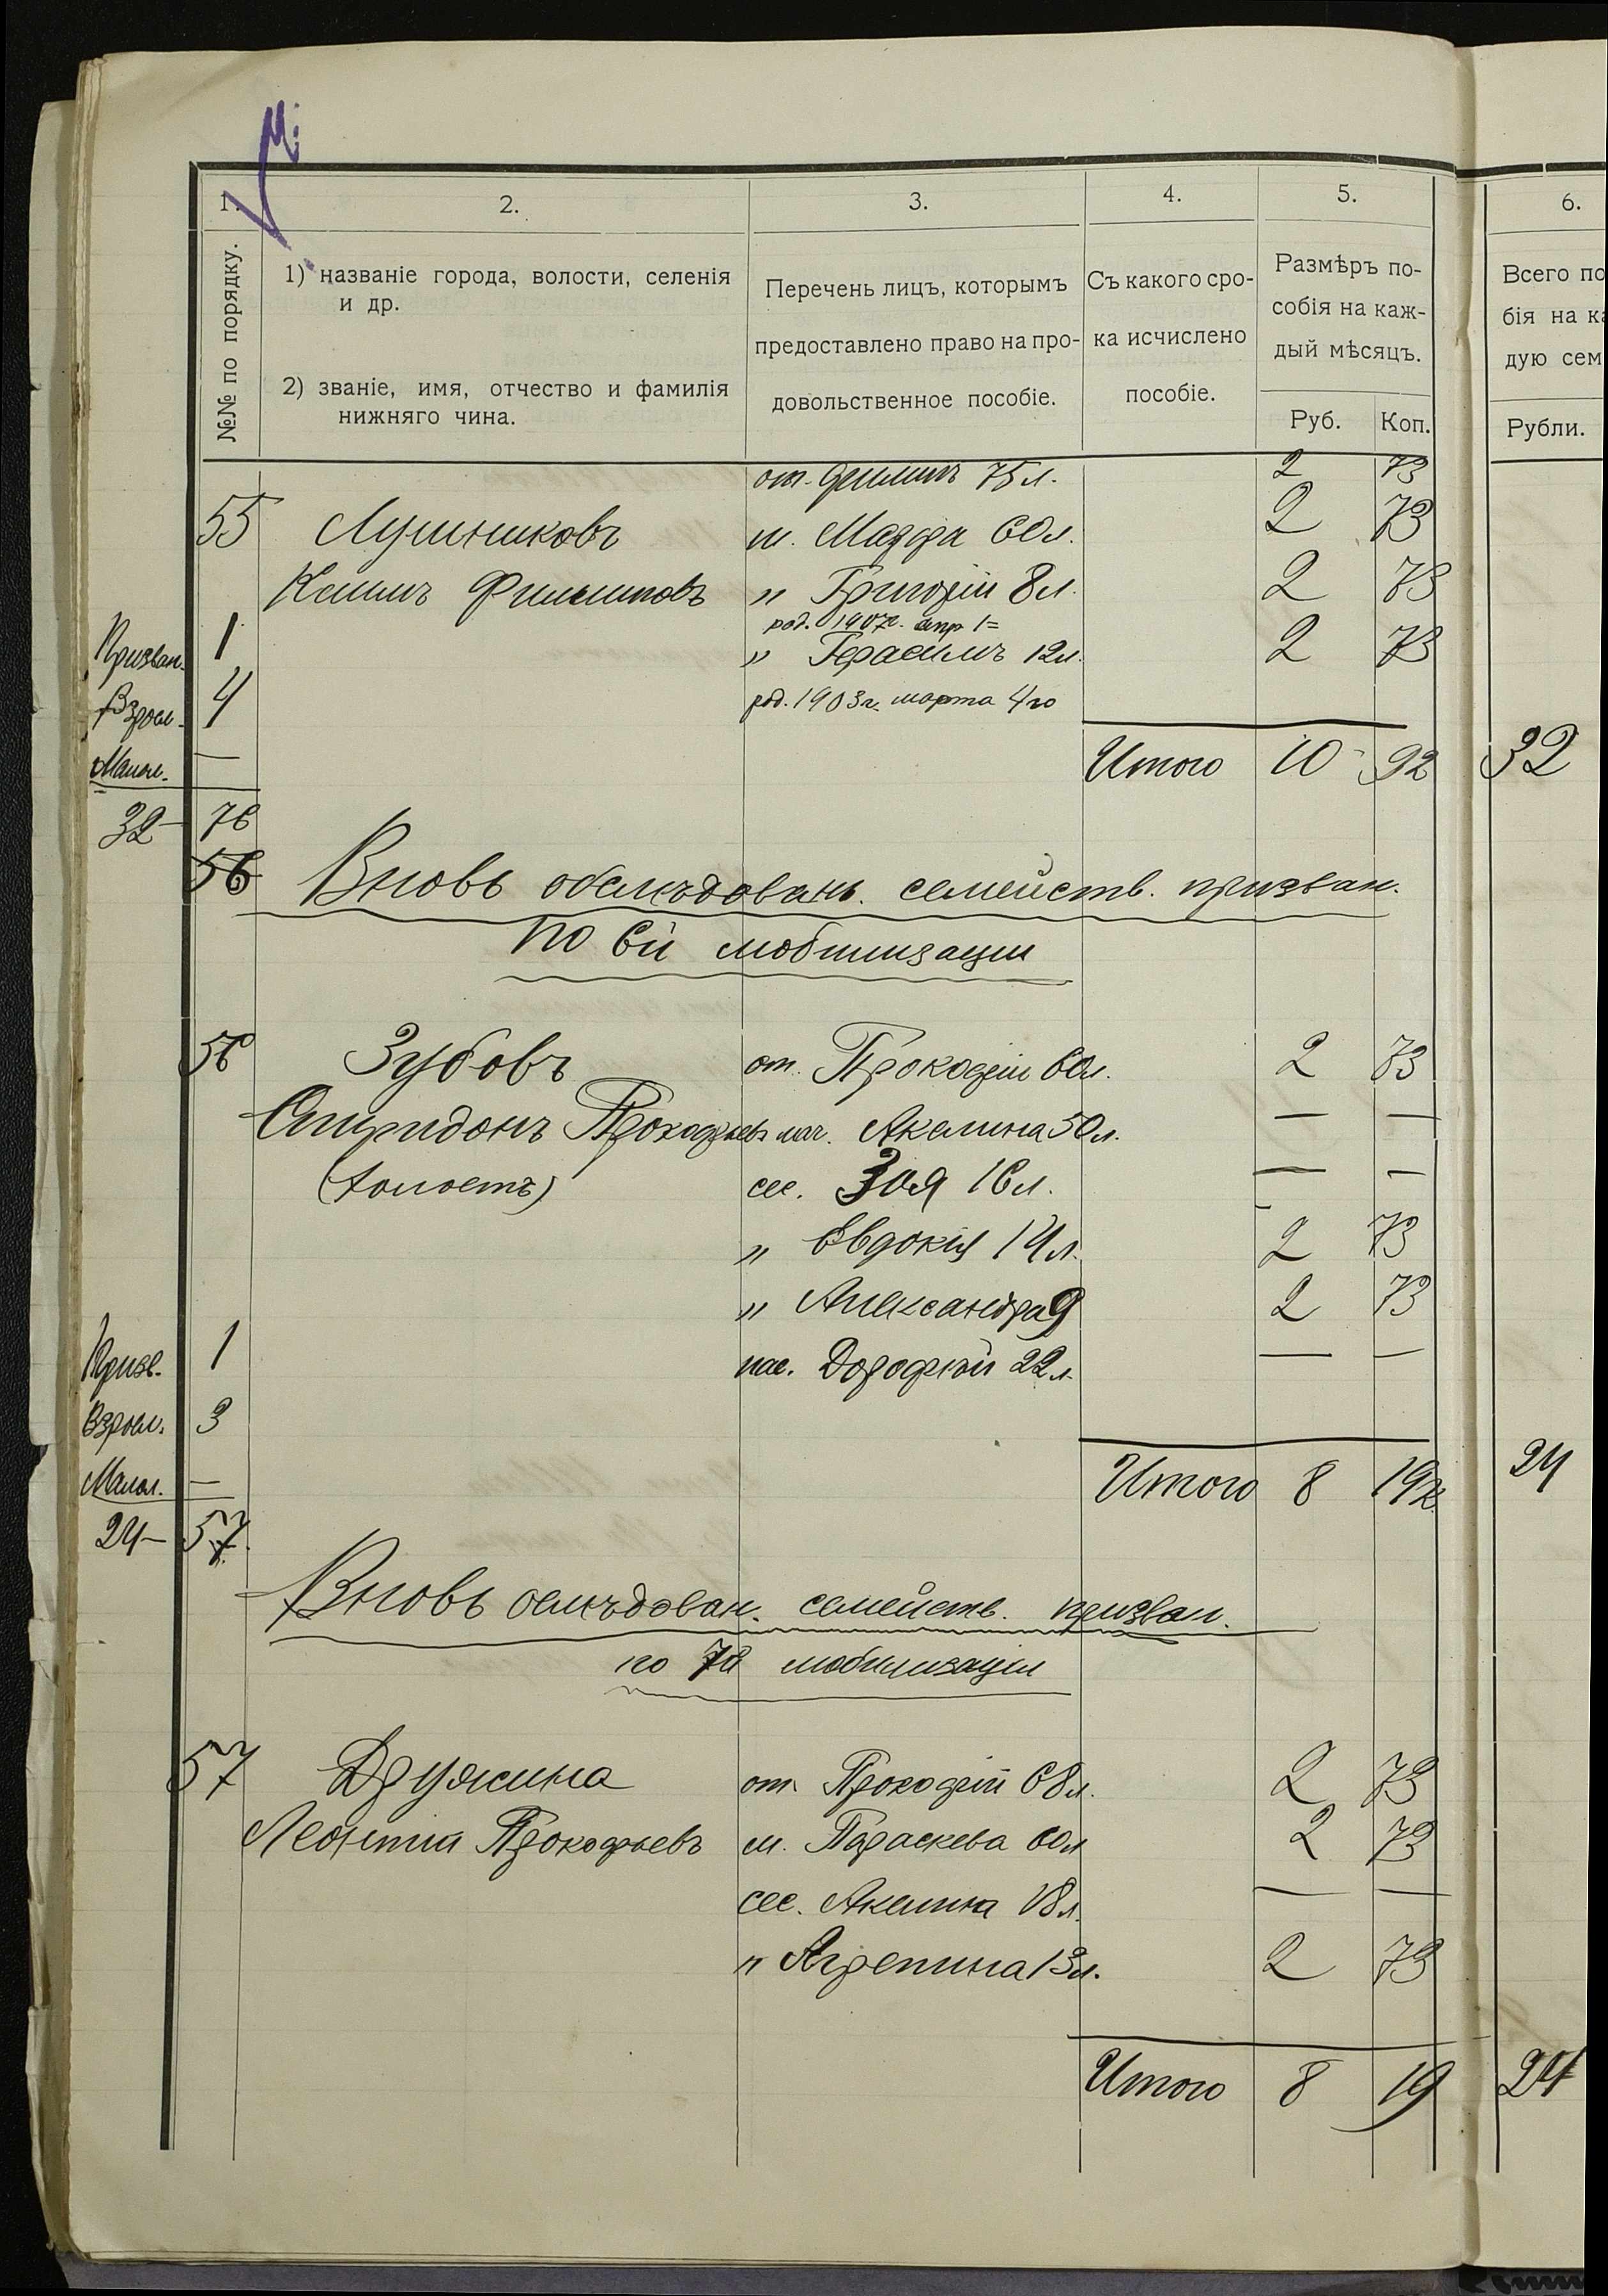 1. 2. 3. 4. 5. 6.
№№ по порядку.
1) названіе города, волости, селенія
и др.
2) званіе, имя, отчество и фамилія
нижняго чина.
Перечень лицъ, которымъ
предоставлено право на про-
довольственное пособіе.
Съ какого сро-
ка исчислено
пособіе.
Размѣръ по-
собія на каж-
дый мѣсяцъ.
Руб. Коп.
Всего по
бія на ка
дую сем
Рубли.
от. 75 л. 2 73
55 Лушниковъ м. Марфа 60 л. 2 73
Филиповъ " Григорій 8 л. 2 73
род. 1907г. апр 1=
Призван. 1 " Герасимъ 12 л. 2 73
Взросл. 4 род. 1903 г. марта 4го
Малол. — Итого 10 92 32
32 - 76
56 Вновь обслѣдовань. семейств. призван.
по 6й мобилизаціи
56 Зубовъ от. Прокофій 60 л. 2 73
Спиридонъ Прокофьевъ мач. Акелина 50 л. — —
(холостъ) сес. Зоя 16 л. — —
" Евдокія 14 л. 2 73
" Александра 9 2 73
Призв. 1 пас. Дорофей 22 л. — —
Взросл. 3
Малол. — Итого 8 19 к. 24
24 - 57
Вновь обслѣдован. семейств. призван.
по 7й мобилизаціи
57 Дружина от. Прокофій 68 л. 2 73
Леонтій Прокофьевъ м. Параскева 60 л 2 73
сес. Акелина 18 л. — —
" Агрепина 13 л. 2 73
Итого 8 19 24